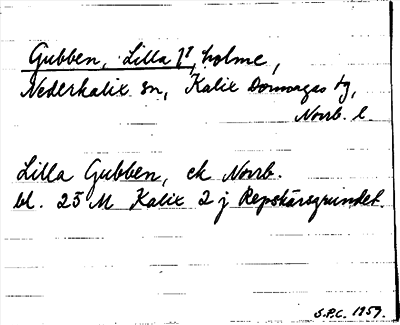 Gubben, Lilla, holme,
Nederkalix sn, Kalix Domsagas tg,
Norrb. l.
Lilla Gubben, ek Norrb.
bl. 25 M Kalix 2 j Repskärsgrundet.
S.P.C. 1959.